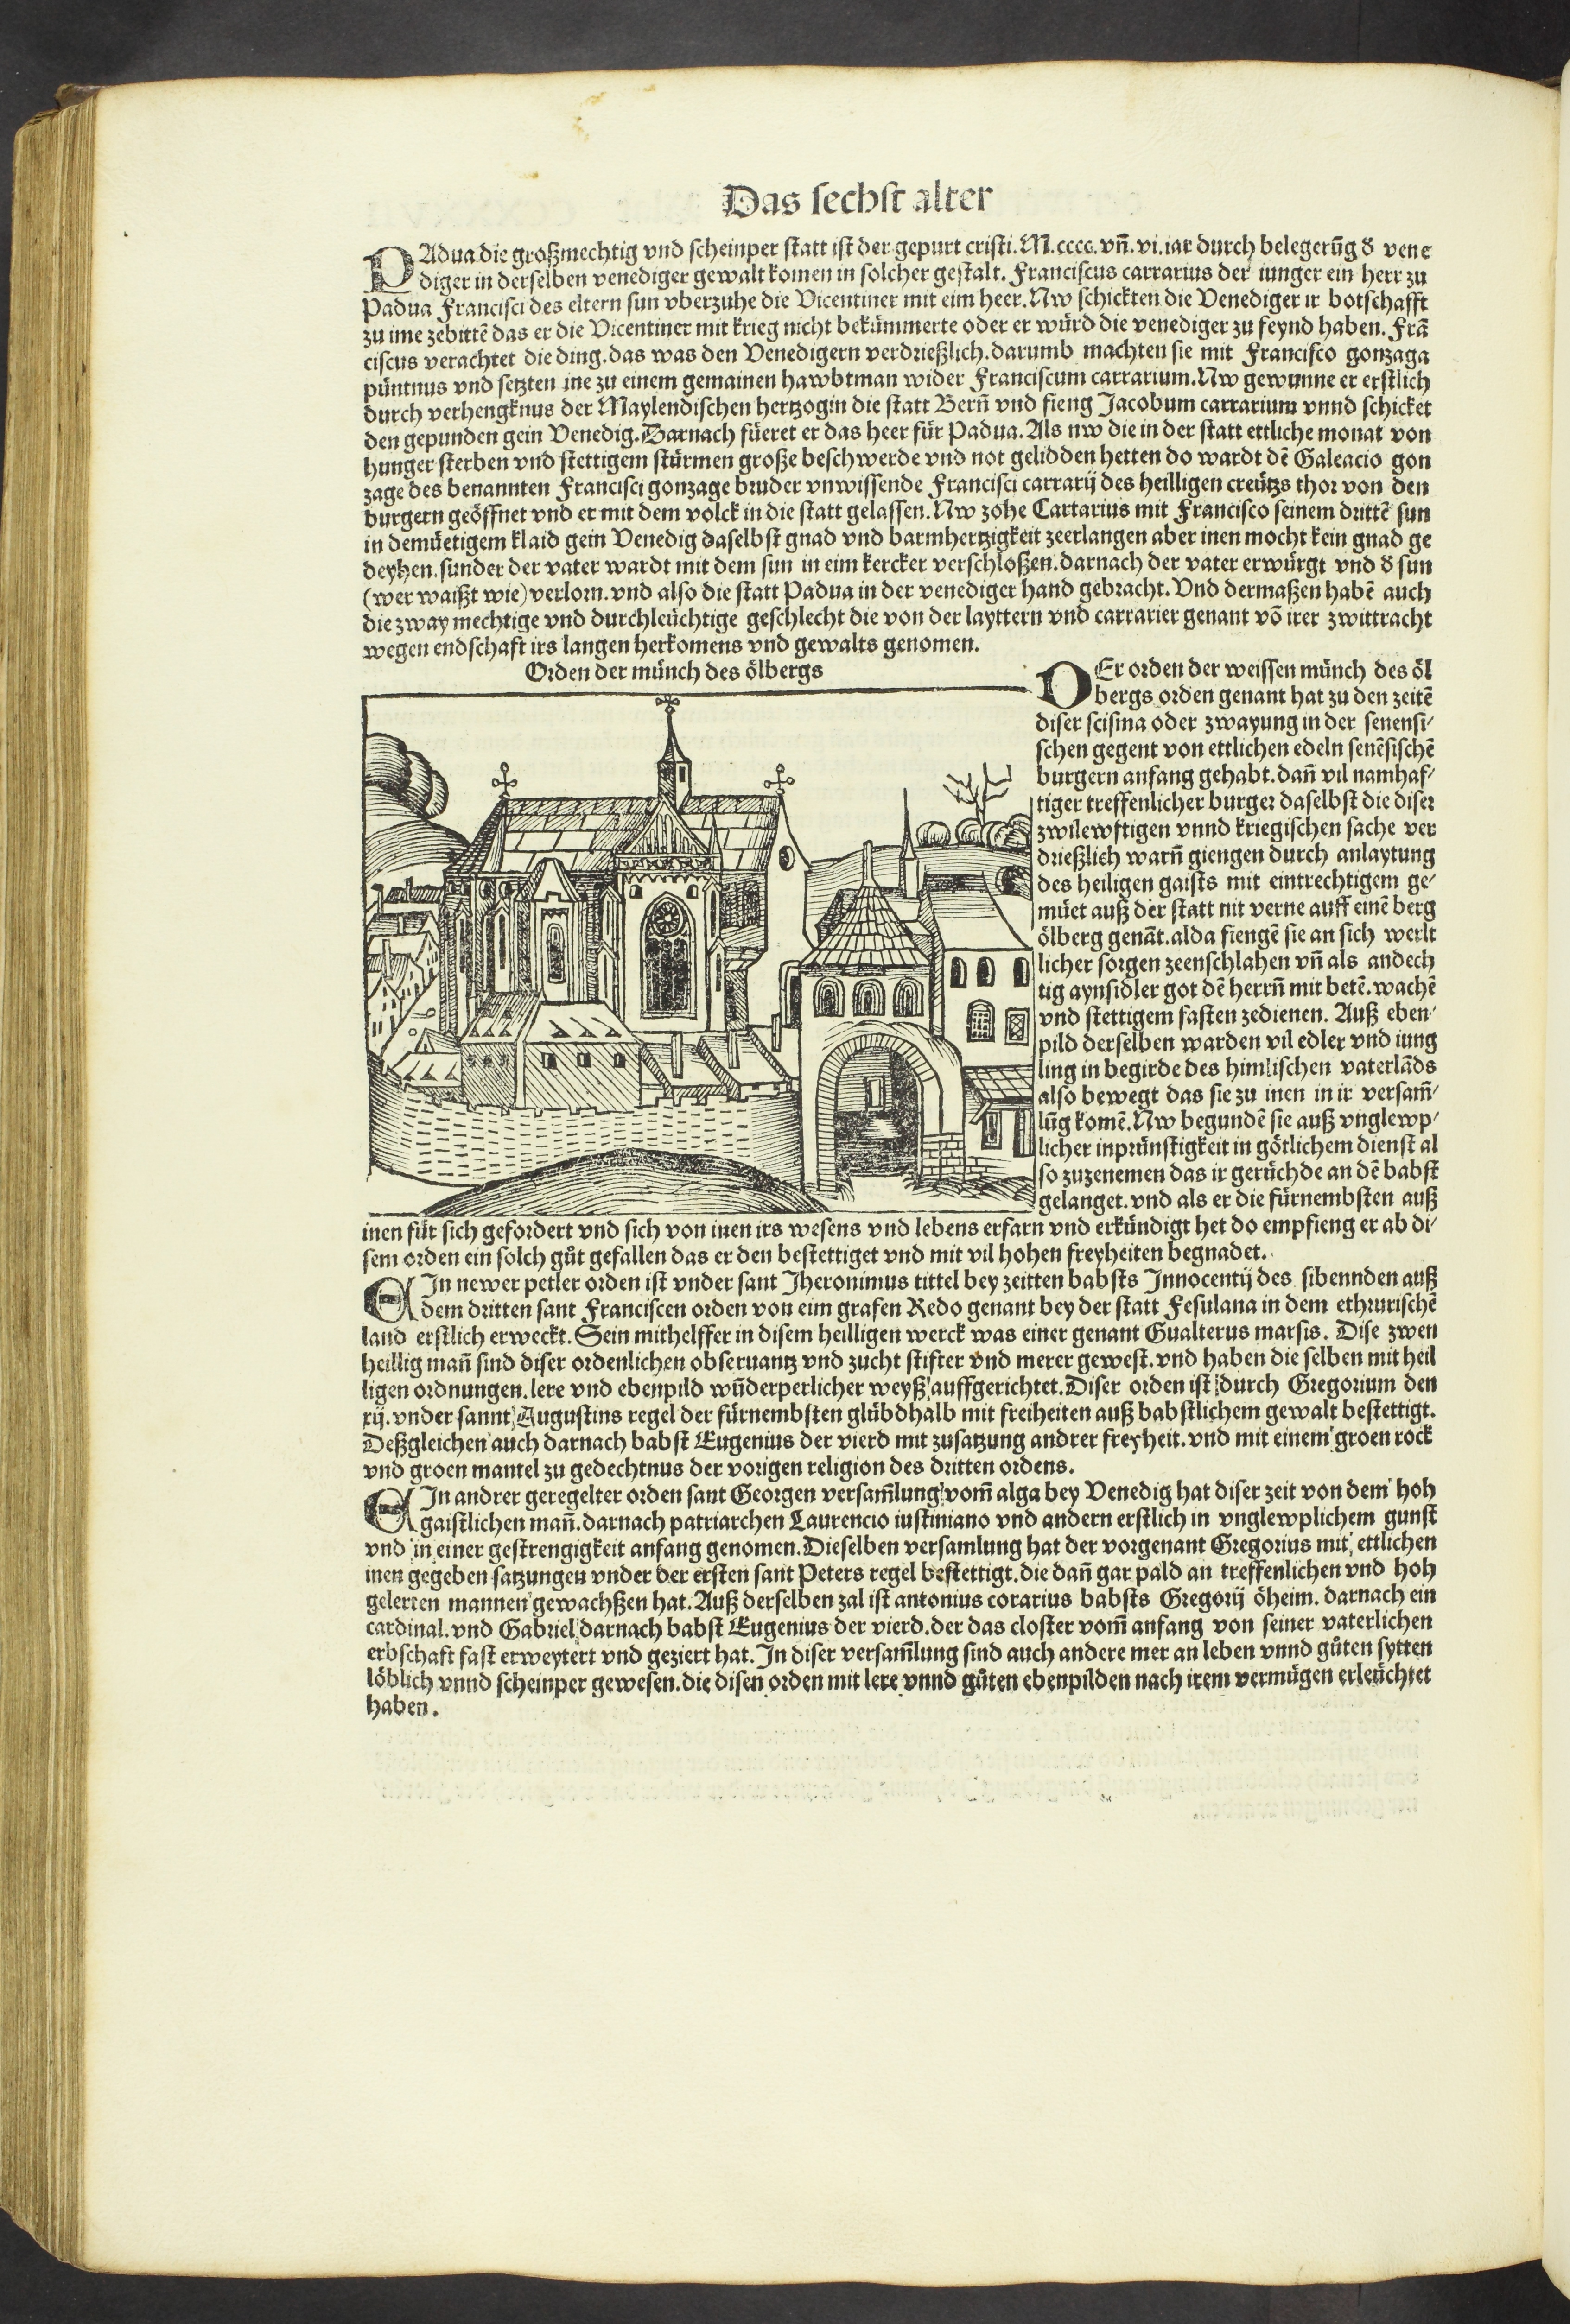 Das sechst alter
PAdua die großmechtig vnd scheinper statt ist der gepurt cristi. M.cccc. vn̄. vi. iar durch belegerūg d̕ vene
diger in derselben venediger gewalt komen in solcher gestalt. Franciscus carrarius der iunger ein herr zu
Padua Francisci des eltern sun vberzuhe die Vicentiner mit eim heer. Nw schickten die Venediger ir botschafft
zu ime zebittē das er die Vicentiner mit krieg nicht bekümmerte oder er würd die venediger zu feynd haben. Frā
ciscus verachtet die ding. das was den Venedigern verdrießlich. darumb machten sie mit Francisco gonzaga
püntnus vnd setzten ine zu einem gemainen hawbtman wider Franciscum carrarium. Nw gewunne er erstlich
durch verhengknus der Maylendischen hertzogin die statt Bern̄ vnd fieng Jacobum carrarium vnnd schicket
den gepunden gein Venedig. Darnach füeret er das heer für Padua. Als nw die in der statt ettliche monat von
hunger sterben vnd stettigem stürmen große beschwerde vnd not gelidden hetten do wardt dē Galeacio gon
zage des benannten Francisci gonzage bruder vnwissende Francisci carrarij des heilligen creützs thor von den
burgern geöffnet vnd er mit dem volck in die statt gelassen. Nw zohe Cartarius mit Francisco seinem drittē sun
in demüetigem klaid gein Venedig daselbst gnad vnd barmhertzigkeit zeerlangen aber inen mocht kein gnad ge
deyhen. sunder der vater wardt mit dem sun in eim kercker verschloßen. darnach der vater erwürgt vnd d̕ sun
(wer waißt wie) verlorn. vnd also die statt Padua in der venediger hand gebracht. Vnd dermaßen habē auch
die zway mechtige vnd durchleüchtige geschlecht die von der layttern vnd carrarier genant vō irer zwittracht
wegen endschaft irs langen herkomens vnd gewalts genomen.
Orden der münch des ölbergs
DEr orden der weissen münch des öl
bergs orden genant hat zu den zeitē
diser scisina oder zwayung in der senensi-
schen gegent von ettlichen edeln senēsischē
burgern anfang gehabt. dan̄ vil namhaf-
tiger treffenlicher burger daselbst die diser
zwilewftigen vnnd kriegischen sache ver
drießlich warn̄ giengen durch anlaytung
des heiligen gaists mit eintrechtigem ge-
müet auß der statt nit verne auff einē berg
ölberg genāt. alda fiengē sie an sich werlt
licher sorgen zeenschlahen vn̄ als andech
tig aynsidler got dē herrn̄ mit betē. wachē
vnd stettigem fasten zedienen. Auß eben-
pild derselben warden vil edler vnd iung
ling in begirde des himlischen vaterlāds
also bewegt das sie zu inen in ir versam̄-
lūg komē. Nw begundē sie auß vnglewp-
licher inprünstigkeit in götlichem dienst al
so zuzenemen das ir gerüchde an dē babst
gelanget. vnd als er die fürnembsten auß
inen für sich gefordert vnd sich von inen irs wesens vnd lebens erfarn vnd erkündigt het do empfieng er ab di-
sem orden ein solch gůt gefallen das er den bestettiget vnd mit vil hohen freyheiten begnadet.
EIn newer petler orden ist vnder sant Jheronimus tittel bey zeitten babsts Innocentij des sibennden auß
dem dritten sant Franciscen orden von eim grafen Redo genant bey der statt Fesulana in dem ethrurischē
land erstlich erweckt. Sein mithelffer in disem heilligen werck was einer genant Gualterus marsis. Dise zwen
heillig man̄ sind diser ordenlichen obseruantz vnd zucht stifter vnd merer gewest. vnd haben die selben mit heil
ligen ordnungen. lere vnd ebenpild wūderperlicher weyß auffgerichtet. Diser orden ist durch Gregorium den
xij. vnder sannt Augustins regel der fürnembsten glübdhalb mit freiheiten auß babstlichem gewalt bestettigt.
Deßgleichen auch darnach babst Eugenius der vierd mit zusatzung andrer freyheit. vnd mit einem groen rock
vnd groen mantel zu gedechtnus der vorigen religion des dritten ordens.
EIn andrer geregelter orden sant Georgen versam̄lung vom̄ alga bey Venedig hat diser zeit von dem hoh
gaistlichen man̄. darnach patriarchen Laurencio iustiniano vnd andern erstlich in vnglewplichem gunst
vnd in einer gestrengigkeit anfang genomen. Dieselben versamlung hat der vorgenant Gregorius mit ettlichen
inen gegeben satzungen vnder der ersten sant Peters regel bestettigt. die dan̄ gar pald an treffenlichen vnd hoh
gelerten mannen gewachßen hat. Auß derselben zal ist antonius corarius babsts Gregorij öheim. darnach ein
cardinal. vnd Gabriel darnach babst Eugenius der vierd. der das closter vom̄ anfang von seiner vaterlichen
erbschaft fast erweytert vnd geziert hat. In diser versam̄lung sind auch andere mer an leben vnnd gůten sytten
löblich vnnd scheinper gewesen. die disen orden mit lere vnnd gůten ebenpilden nach irem vermügen erleüchtet
haben.